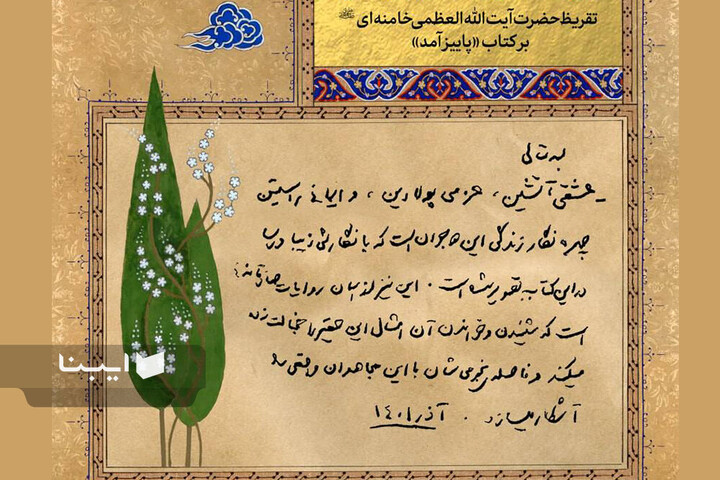 تقریظ حضرت آیت الله العظمی خامنه‌ای
بر کتاب «پاییز آمد»
بسمه تعالی
عشقی آتشین، عزمی پولادین، و ایمانی راستین
چهره نگار زندگی این دو جوان است که با نگارشی زیبا و رسا
در این کتاب تصویر شده است. این نیز از آن روایات صادقانه‌ئی
است که شنیدن و خواندن آن امثال این حقیر را خجالت‌زده
میکند و فاصله‌ی نجومی‌شان با این مجاهدان واقعی را
آشکار میسازد. آذر ۱۴۰۱
ایبنا